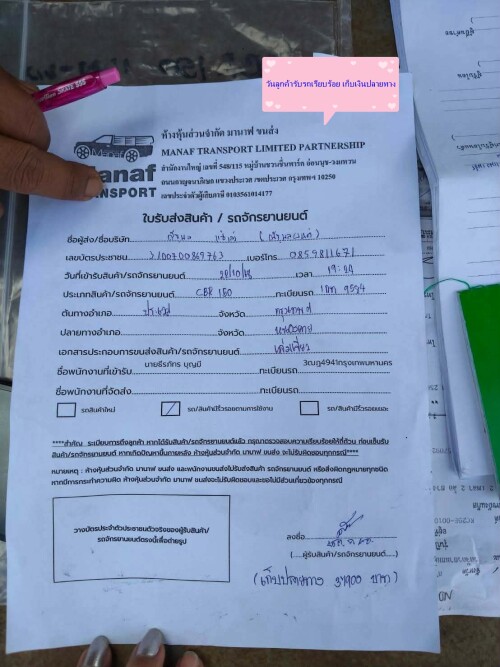 วันลูกค้ารับรถเรียบร้อย เก็บเงินปลายทาง
Manaf
Manaf
TRANSPORT
ห้างหุ้นส่วนจำกัด มานาฟ ขนส่ง
MANAF TRANSPORT LIMITED PARTNERSHIP
สำนักงานใหญ่ เลขที่ 548/115 หมู่บ้านชวนชื่นพาร์ค อ่อนนุช-วงแหวน
ถนนกาญจนาภิเษก แขวงประเวศ เขตประเวศ กรุงเทพฯ 10250
เลขประจำตัวผู้เสียภาษี 0103561014177
ใบรับส่งสินค้า / รถจักรยานยนต์
ชื่อผู้ส่ง/ชื่อบริษัท
เลขบัตรประชาชน เบอร์โทร 0859811671
วันที่เข้ารับสินค้า/รถจักรยานยนต์ เวลา
ประเภทสินค้า/รถจักรยานยนต์ CBR 150 ทะเบียนรถ 9534
ต้นทางอำเภอ ประเวศ จังหวัด กรุงเทพฯ
ปลายทางอำเภอ จังหวัด หนองคาย
เอกสารประกอบการขนส่งสินค้า/รถจักรยานยนต์ เล่มเขียว
ชื่อพนักงานที่เข้ารับ นายธีรภัทร บุญมี ทะเบียนรถ 3ฒฎ4941กรุงเทพมหานคร
ชื่อพนักงานที่จัดส่ง ทะเบียนรถ
รถสินค้าใหม่ รถ/สินค้ามีริ้วรอยตามการใช้งาน รถ/สินค้ามีริ้วรอยเยอะ
****สำคัญ ระเบียบการถึงลูกค้า หากได้รับสินค้า/รถจักรยานยนต์แล้ว กรุณาตรวจสอบความเรียบร้อยให้ถี่ถ้วน ก่อนเซ็นรับ
สินค้า/รถจักรยานยนต์ หากเกิดปัญหาขึ้นภายหลัง ห้างหุ้นส่วนจำกัด มานาฟ ขนส่ง จะไม่รับผิดชอบทุกกรณี****
หมายเหตุ : ห้างหุ้นส่วนจำกัด มานาฟ ขนส่ง และพนักงานขนส่งไม่รับส่งสินค้า รถจักรยานยนต์ หรือสิ่งผิดกฎหมายทุกชนิด
หากมีการกระทำความผิด ห้างหุ้นส่วนจำกัด มานาฟ ขนส่งจะไม่รับผิดชอบและขอไม่มีส่วนเกี่ยวข้องทุกกรณี
วางบัตรประจำตัวประชาชนตัวจริงของผู้รับสินค้า/
รถจักรยานยนต์ตรงนี้เพื่อถ่ายรูป
ลงชื่อ
(.....ผู้รับสินค้า/รถจักรยานยนต์.....)
(เก็บปลายทาง 31900 บาท)